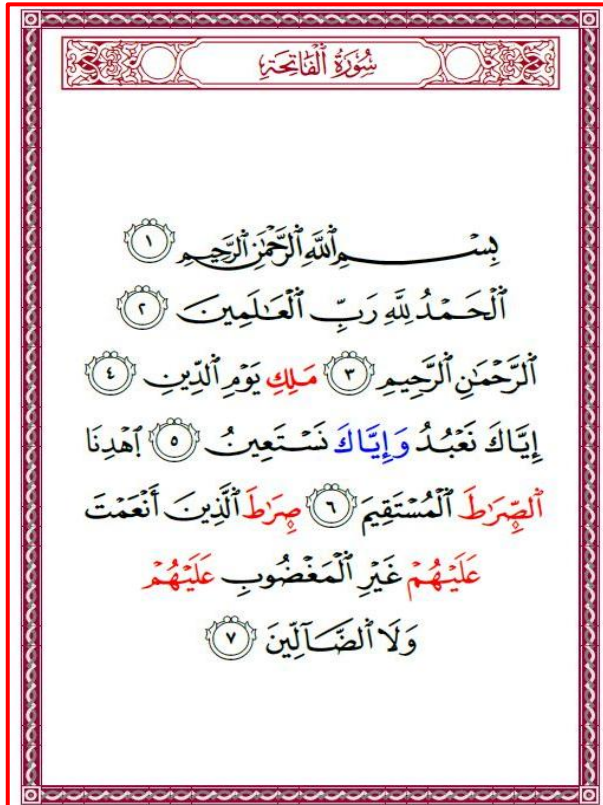 سُورَةُ ٱلْفَاتِحَةِ
بِسْمِ ٱللَّهِ ٱلرَّحْمَٰنِ ٱلرَّحِيمِ ١
ٱلْحَمْدُ لِلَّهِ رَبِّ ٱلْعَٰلَمِينَ ٢
ٱلرَّحْمَٰنِ ٱلرَّحِيمِ ٣ مَلِكِ يَوْمِ ٱلدِّينِ ٤
إِيَّاكَ نَعْبُدُ وَإِيَّاكَ نَسْتَعِينُ ٥ ٱهْدِنَا
ٱلصِّرَٰطَ ٱلْمُسْتَقِيمَ ٦ صِرَٰطَ ٱلَّذِينَ أَنْعَمْتَ
عَلَيْهُمْ غَيْرِ ٱلْمَغْضُوبِ عَلَيْهُمْ
وَلَا ٱلضَّآلِّينَ ٧